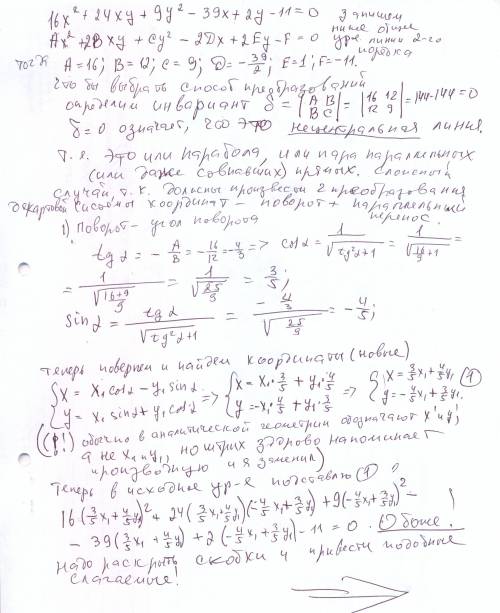 16x² + 24xy + 9y² - 39x + 2y - 11 = 0 запишем
Ax² + 2Bxy + Cy² - 2Dx + 2Ey - F = 0 ниже общее ур-е линии 2-го порядка
тогда A = 16; B = 12; C = 9; D = -39/2; E = 1; F = -11.
Что бы выбрать способ преобразований
определим инвариант δ = |A B; B C| = |16 12; 12 9| = 144-144 = 0
δ = 0 означает, что это нецентральная линия.
т.е. это или парабола, или пара параллельных
(или даже совпавших) прямых. Сложный
случай, т.к. должны произвести 2 преобразования
декартовой системы координат - поворот + параллельный перенос.
1) Поворот - угол поворота
tg α = -A/B = -16/12 = -4/3 => cos α = 1/√(tg²α+1) = 1/√(16/9+1) =
= 1/√((16+9)/9) = 1/√(25/9) = 3/5;
sin α = tg α/√(tg²α+1) = (-4/3)/√(25/9) = -4/5;
Теперь повернем и найдем координаты (новые)
{x = x₁cos α - y₁ sin α; y = x₁ sin α + y₁ cos α => {x = x₁·3/5 + y₁·4/5; y = -x₁·4/5 + y₁·3/5 => {x = 3/5x₁ + 4/5y₁; y = -4/5x₁ + 3/5y₁. (1)
((!) обычно в аналитической геометрии обозначают x' и y',
а не x₁ и y₁, но штрих здорово напоминает
производную и я заменил)
Теперь в исходное ур-е подставляю (1)
16·(3/5x₁ + 4/5y₁)² + 24(3/5x₁ + 4/5y₁)(-4/5x₁ + 3/5y₁) + 9(-4/5x₁ + 3/5y₁)² -
- 39(3/5x₁ + 4/5y₁) + 2(-4/5x₁ + 3/5y₁) - 11 = 0. О боже!
Надо раскрыть скобки и привести подобные
слагаемые!